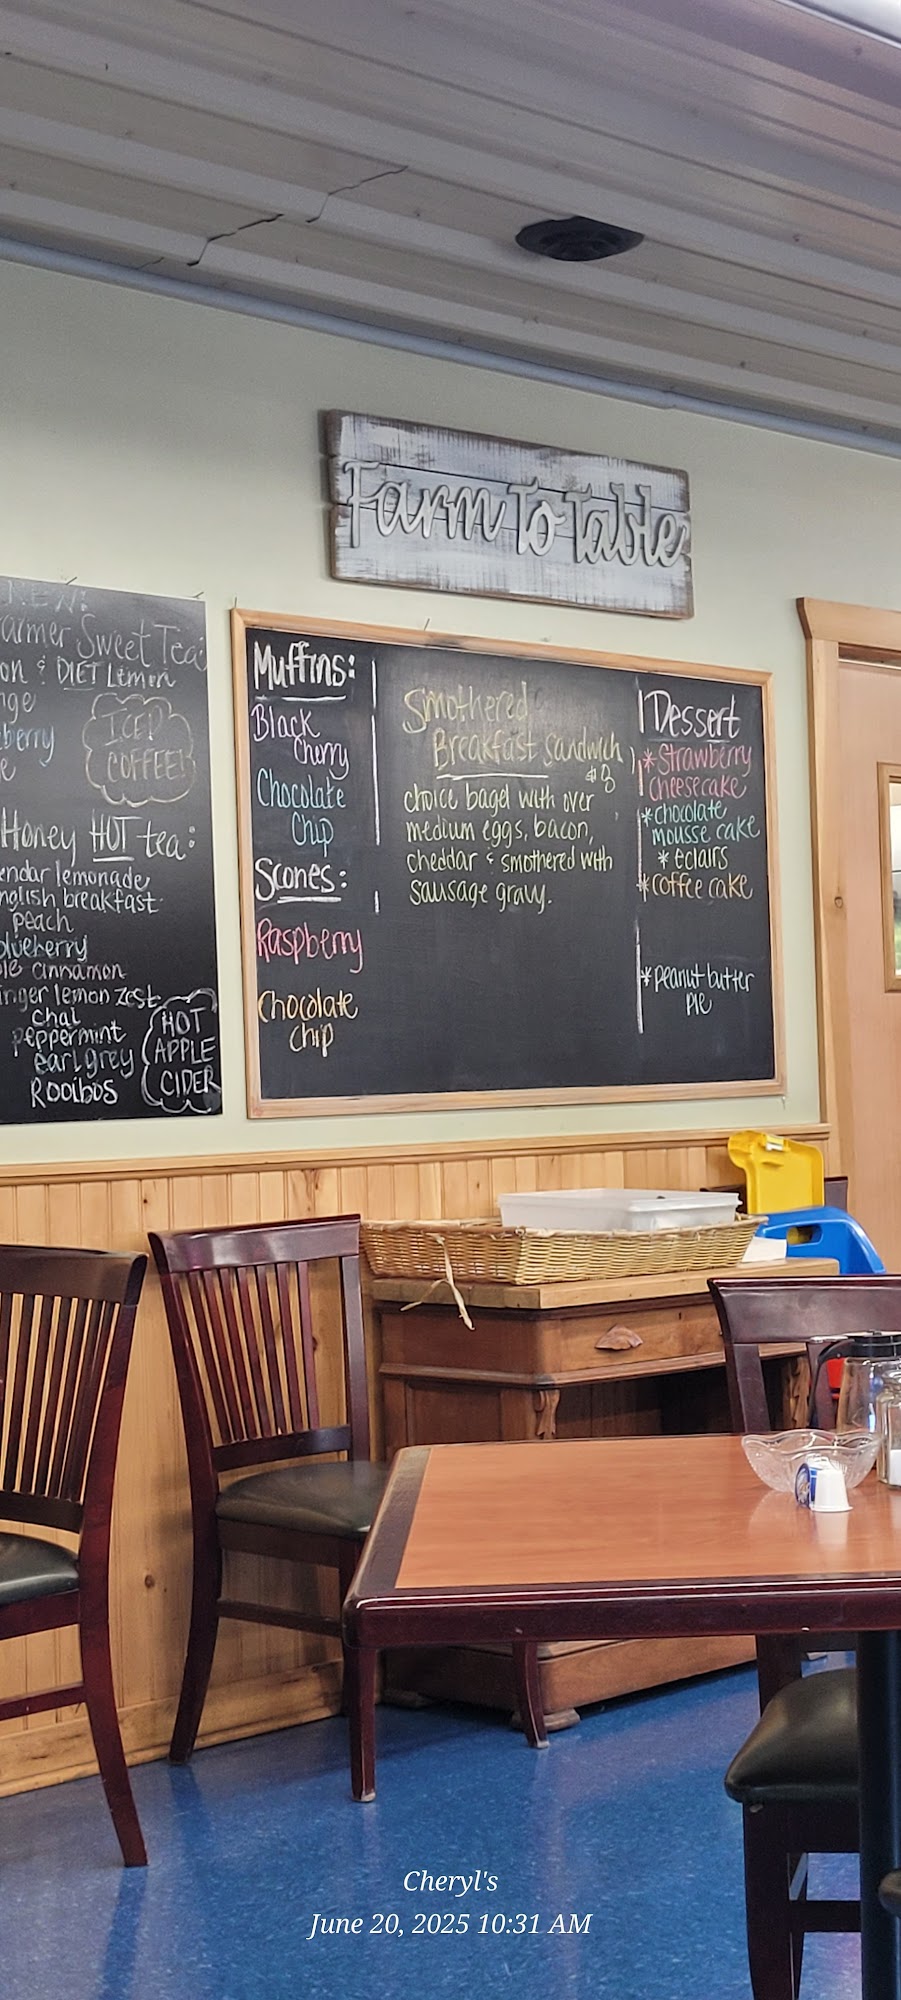 Farm To Table
NEW:
Sweet Tea:
& DIET Lemon
ICED
COFFEE!
Honey HOT tea:
lemonade
breakfast
peach
blueberry
cinnamon
lemon zest
chai
peppermint
earl grey
Rooibos
HOT
APPLE
CIDER
Muffins:
Black
Cherry
Chocolate
Chip
Scones:
Raspberry
Chocolate
chip
Smothered
Breakfast sandwich
choice bagel with over
medium eggs, bacon,
cheddar & smothered with
sausage gravy.
Dessert
* Strawberry
cheesecake
* chocolate
mousse cake
* eclairs
* coffee cake
* peanut butter
pie
Cheryl's
June 20, 2025 10:31 AM